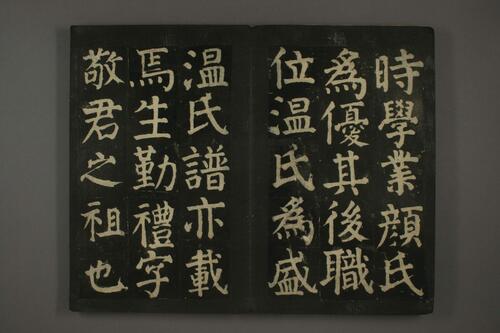 時學業顔氏
為優其後職
位溫氏為盛
溫氏譜亦載
焉生勤禮字
敬君之祖也